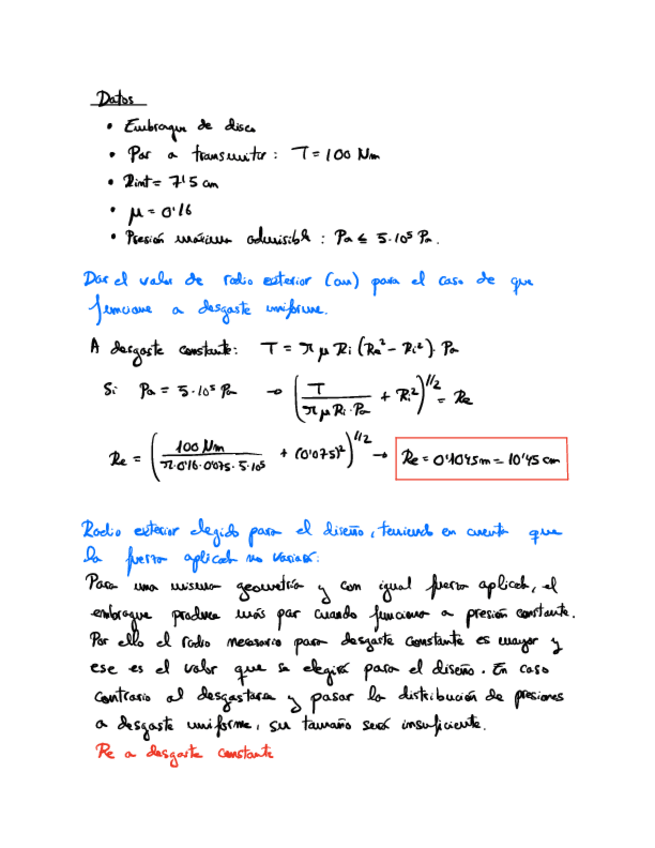 Datos
• Embrague de disco
• Par a transmitir: T = 100 Nm
• Rint = 7'5 cm
• μ = 0'16
• Presión máxima admisible: Pa ≤ 5·10⁵ Pa.
Dar el valor de radio exterior (cm) para el caso de que
funcione a desgaste uniforme.
A desgaste constante: T = π μ Ri (Re² - Ri²) · Pa
Si Pa = 5·10⁵ Pa → (T / (π μ Ri · Pa) + Ri²)^1/2 = Re
Re = (100 Nm / (π·0'16·0'075·5·10⁵) + (0'075)²)^1/2 → Re = 0'1045m = 10'45 cm
Radio exterior elegido para el diseño, teniendo en cuenta que
la fuerza aplicada no variará:
Para una misma geometría y con igual fuerza aplicada, el
embrague produce más par cuando funciona a presión constante.
Por ello el radio necesario para desgaste constante es mayor y
ese es el valor que se elegirá para el diseño. En caso
contrario al desgastarse y pasar la distribución de presiones
a desgaste uniforme, su tamaño será insuficiente.
Re a desgaste constante